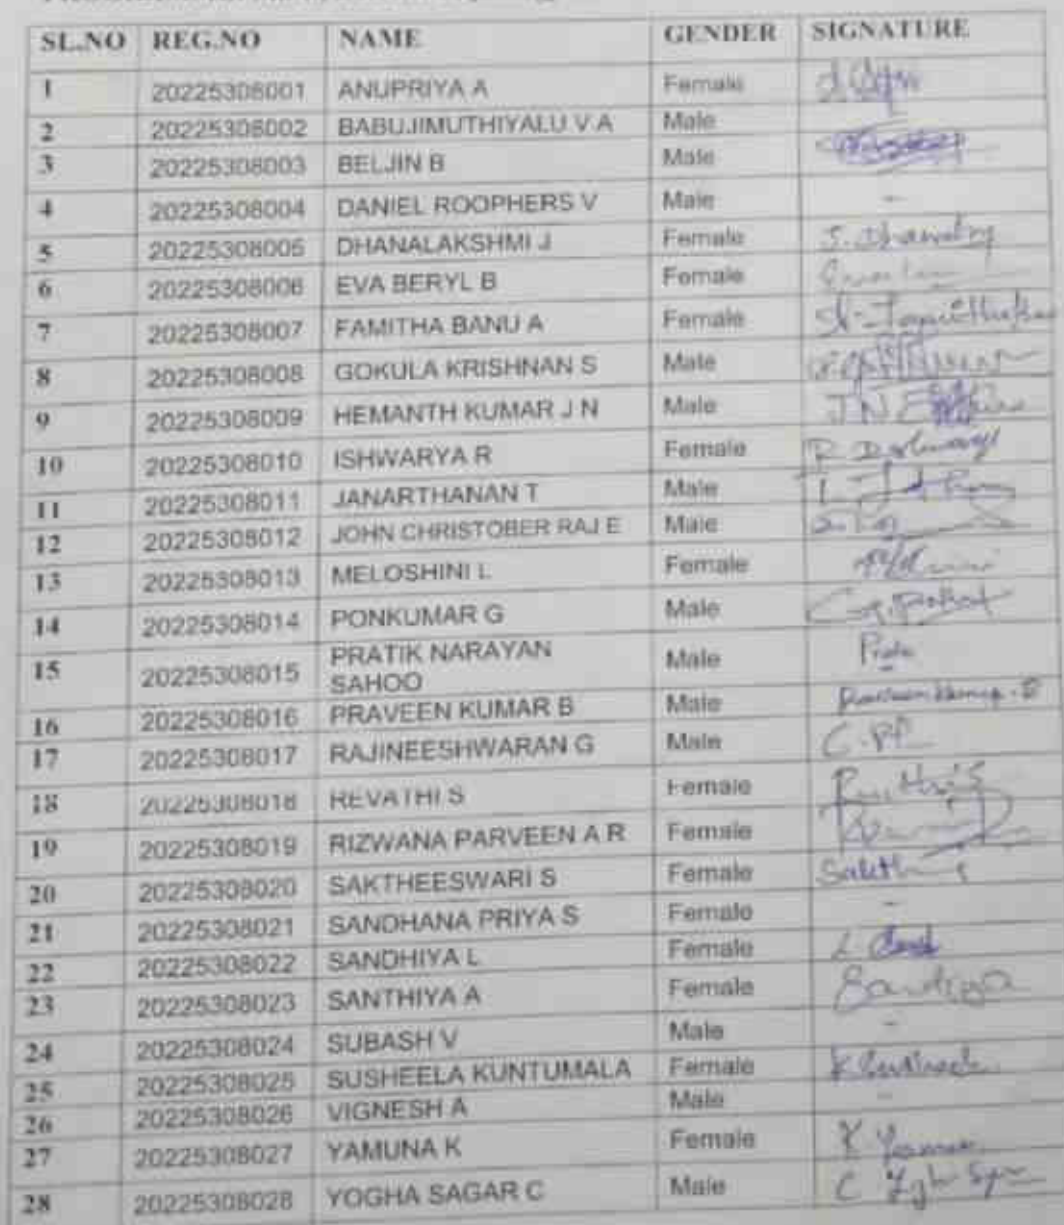 SL.NO REG.NO NAME GENDER SIGNATURE
1 20225308001 ANUPRIYA A Female
2 20225308002 BABUJIMUTHIYALU V A Male
3 20225308003 BELJIN B Male
4 20225308004 DANIEL ROOPHERS V Male -
5 20225308005 DHANALAKSHMI J Female
6 20225308006 EVA BERYL B Female
7 20225308007 FAMITHA BANU A Female
8 20225308008 GOKULA KRISHNAN S Male
9 20225308009 HEMANTH KUMAR J N Male
10 20225308010 ISHWARYA R Female
11 20225308011 JANARTHANAN T Male
12 20225308012 JOHN CHRISTOBER RAJ E Male
13 20225308013 MELOSHINI L Female
14 20225308014 PONKUMAR G Male
15 20225308015 PRATIK NARAYAN
SAHOO Male
16 20225308016 PRAVEEN KUMAR B Male
17 20225308017 RAJINEESHWARAN G Male
18 20225308018 REVATHI S Female
19 20225308019 RIZWANA PARVEEN A R Female
20 20225308020 SAKTHEESWARI S Female
21 20225308021 SANDHANA PRIYA S Female -
22 20225308022 SANDHIYA L Female
23 20225308023 SANTHIYA A Female
24 20225308024 SUBASH V Male -
25 20225308025 SUSHEELA KUNTUMALA Female
26 20225308026 VIGNESH A Male -
27 20225308027 YAMUNA K Female
28 20225308028 YOGHA SAGAR C Male